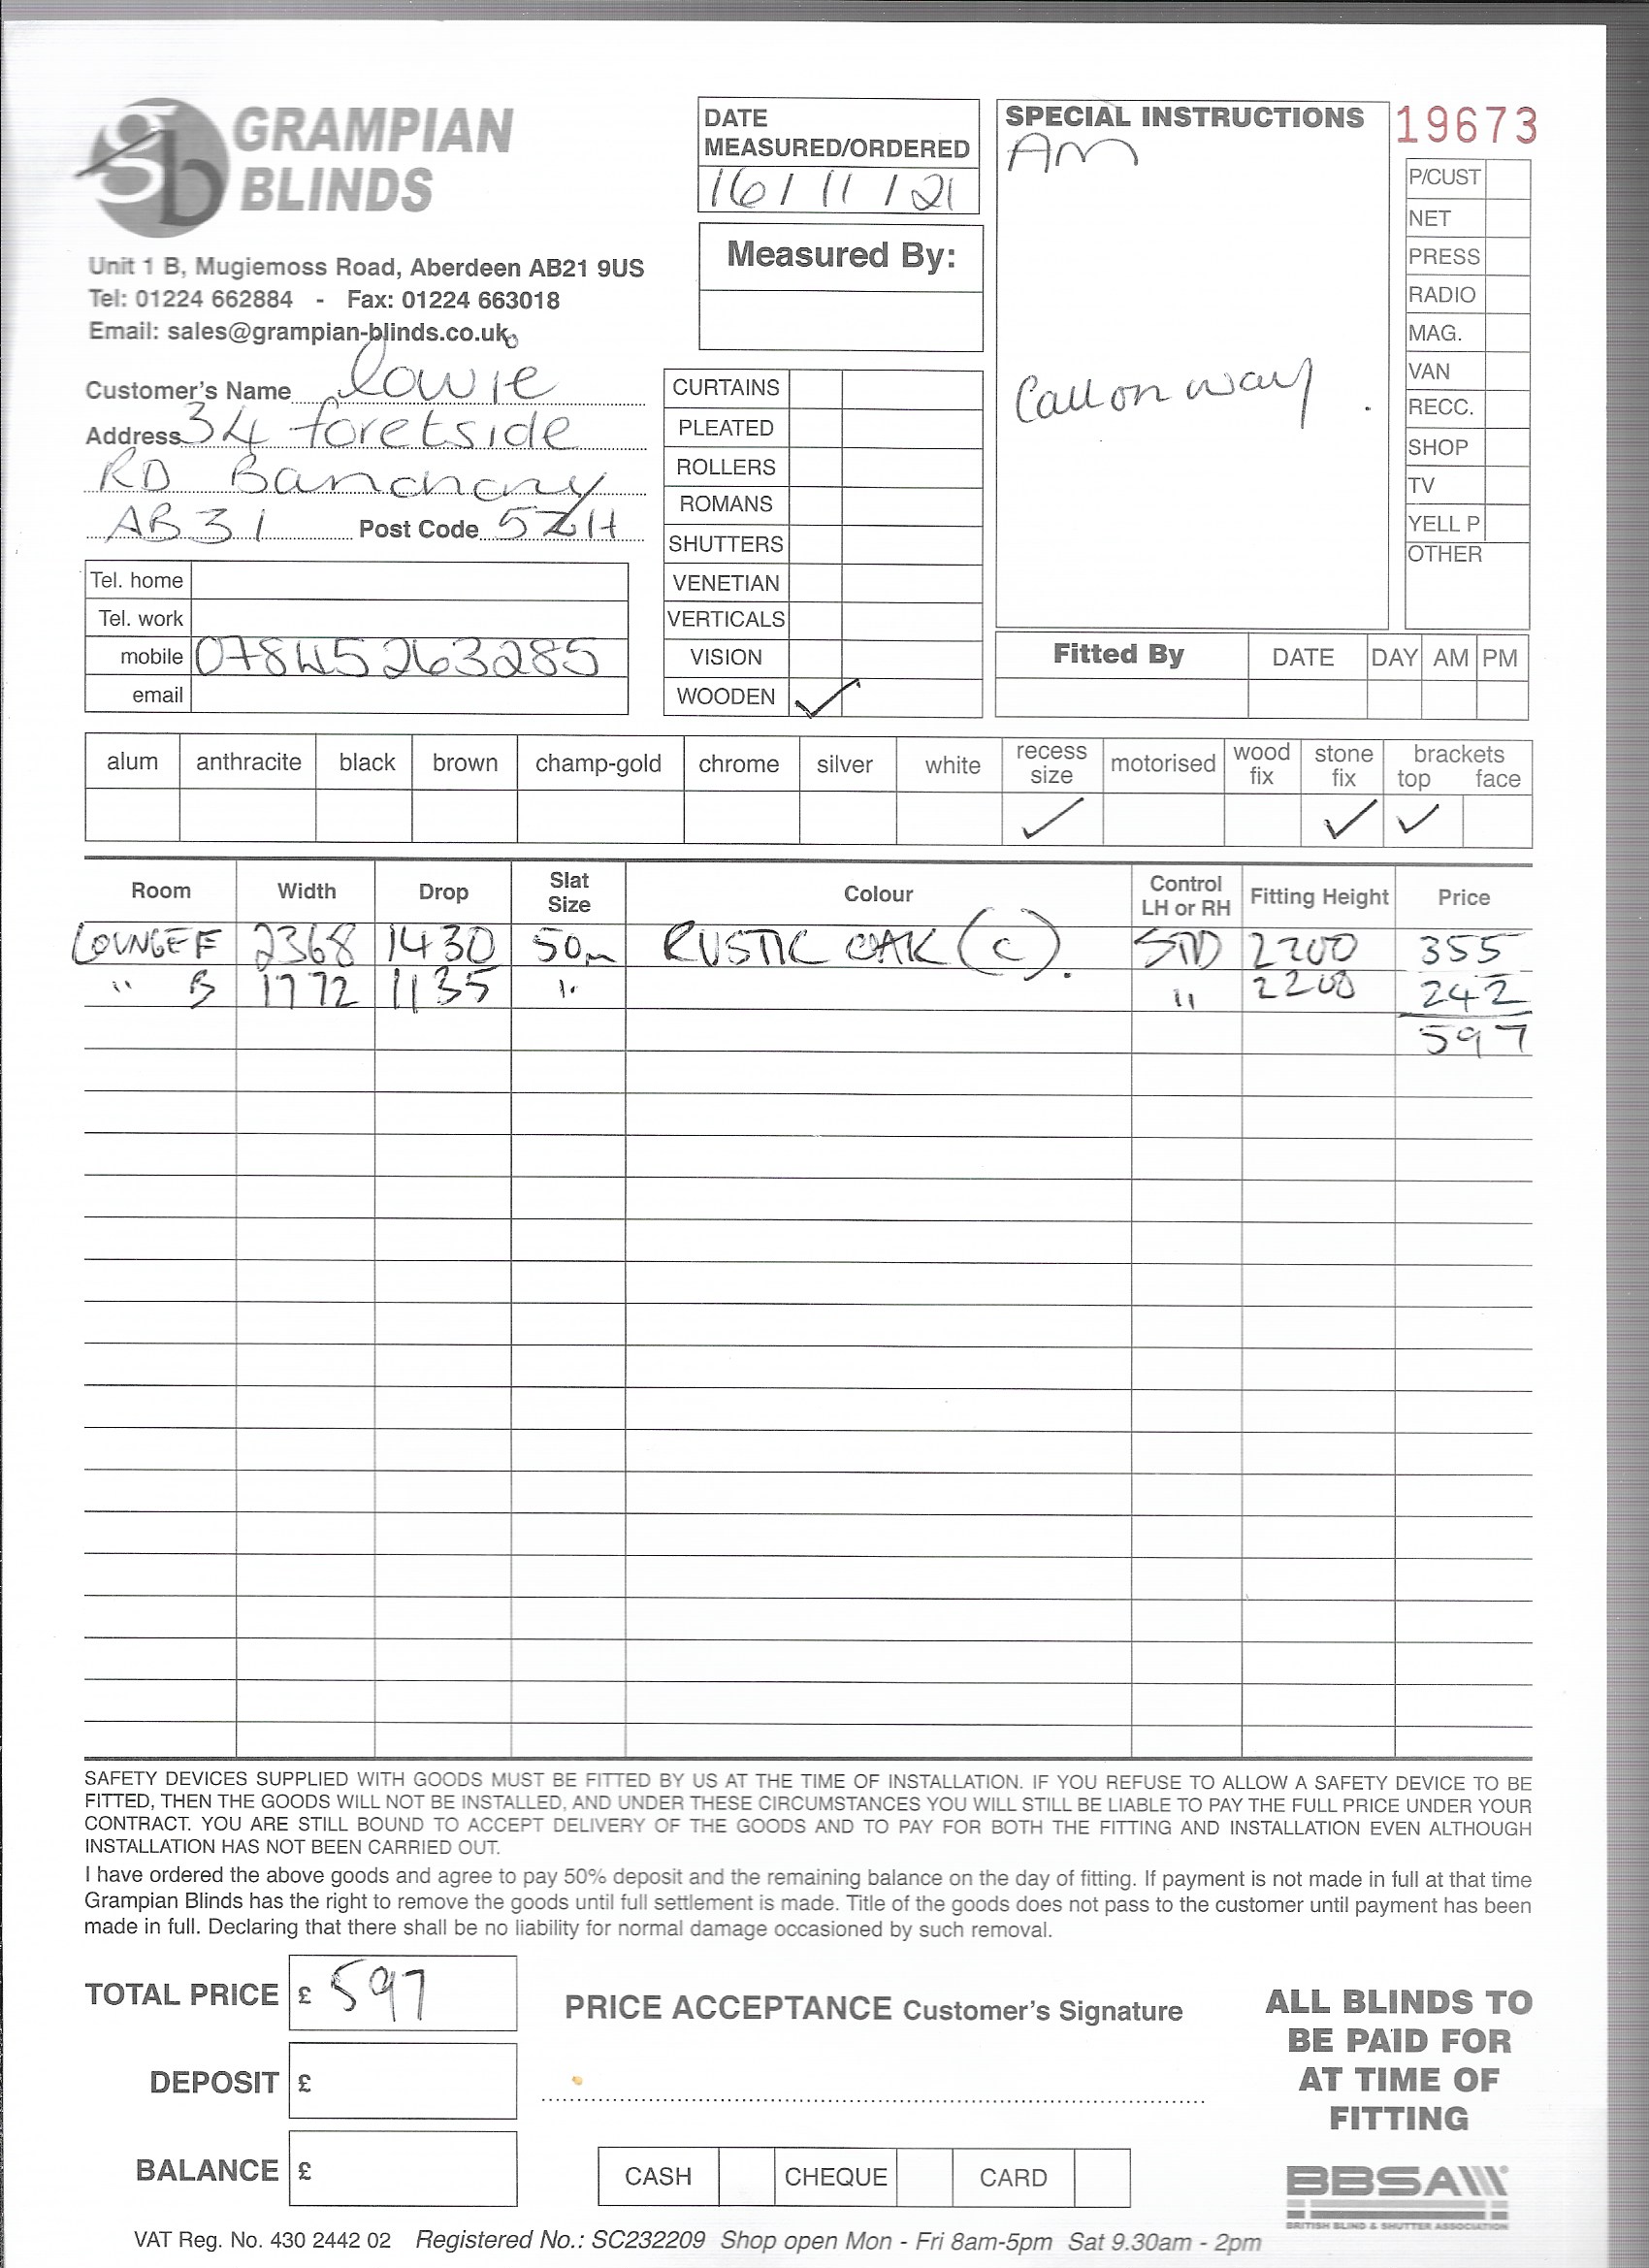 gb GRAMPIAN BLINDS
Unit 1 B, Mugiemoss Road, Aberdeen AB21 9US
Tel: 01224 662884 - Fax: 01224 663018
Email: sales@grampian-blinds.co.uk
Customer's Name Lowie
Address 34 foretside
RD Banchory
AB31 Post Code 5ZH
Tel. home
Tel. work
mobile 07845263285
email
DATE
MEASURED/ORDERED
16/11/21
Measured By:
CURTAINS
PLEATED
ROLLERS
ROMANS
SHUTTERS
VENETIAN
VERTICALS
VISION
WOODEN ✓
SPECIAL INSTRUCTIONS
AM
Call on way.
19673
P/CUST
NET
PRESS
RADIO
MAG.
VAN
RECC.
SHOP
TV
YELL P
OTHER
Fitted By DATE DAY AM PM
alum anthracite black brown champ-gold chrome silver white recess size motorised wood fix stone fix brackets top face
✓ ✓ ✓
Room Width Drop Slat Size Colour Control LH or RH Fitting Height Price
LOUNGE F 2368 1430 50m RUSTIC OAK (C). STD 2200 355
" B 1772 1135 " " 2200 242
597
SAFETY DEVICES SUPPLIED WITH GOODS MUST BE FITTED BY US AT THE TIME OF INSTALLATION. IF YOU REFUSE TO ALLOW A SAFETY DEVICE TO BE
FITTED, THEN THE GOODS WILL NOT BE INSTALLED, AND UNDER THESE CIRCUMSTANCES YOU WILL STILL BE LIABLE TO PAY THE FULL PRICE UNDER YOUR
CONTRACT. YOU ARE STILL BOUND TO ACCEPT DELIVERY OF THE GOODS AND TO PAY FOR BOTH THE FITTING AND INSTALLATION EVEN ALTHOUGH
INSTALLATION HAS NOT BEEN CARRIED OUT.
I have ordered the above goods and agree to pay 50% deposit and the remaining balance on the day of fitting. If payment is not made in full at that time
Grampian Blinds has the right to remove the goods until full settlement is made. Title of the goods does not pass to the customer until payment has been
made in full. Declaring that there shall be no liability for normal damage occasioned by such removal.
TOTAL PRICE £ 597
DEPOSIT £
BALANCE £
PRICE ACCEPTANCE Customer's Signature
CASH CHEQUE CARD
ALL BLINDS TO
BE PAID FOR
AT TIME OF
FITTING
BBSA
BRITISH BLIND & SHUTTER ASSOCIATION
VAT Reg. No. 430 2442 02 Registered No.: SC232209 Shop open Mon - Fri 8am-5pm Sat 9.30am - 2pm